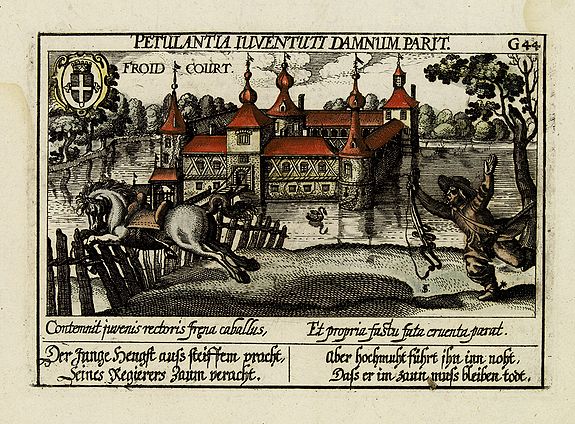 PETULANTIA IUVENTUTI DAMNUM PARIT.
G 44
FROID COURT.
Contemnit juvenis rectoris frena caballus,
Et propria fastu fata cruenta parat.
Der Junge Hengst auß steiffem pracht,
Seines Regierers Zaum veracht.
Aber hochmuht führt ihn inn noht,
Daß er im zaun muß bleiben todt.